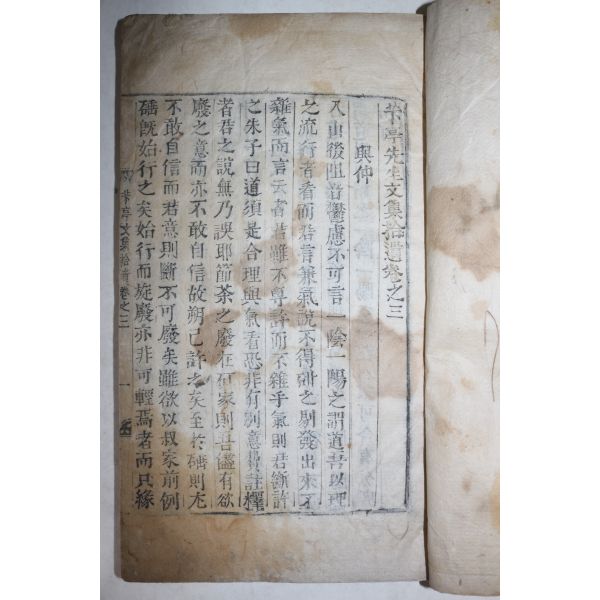 亭先生文集拾遺卷之三
與仲
入山後阻音鬱慮不可言一陰一陽之謂道吾以理
之流行者看而君言兼氣說不得硏之剔發出來不
雜氣而言云者君雖不專許而不雜乎氣則君斷許
之朱子曰道須是合理與氣看恐非有別意費註釋
者君之說無乃誤耶節茶之廢在宗家則吾儘有欲
廢之意而亦不敢自信故朔已許之矣至於礑則尤
不敢自信而若意則斷不可廢矣雖欲以叔家前例
礑旣始行之矣始行而旋廢亦非可輕焉者而只緣
亭文集拾遺 卷之三 一